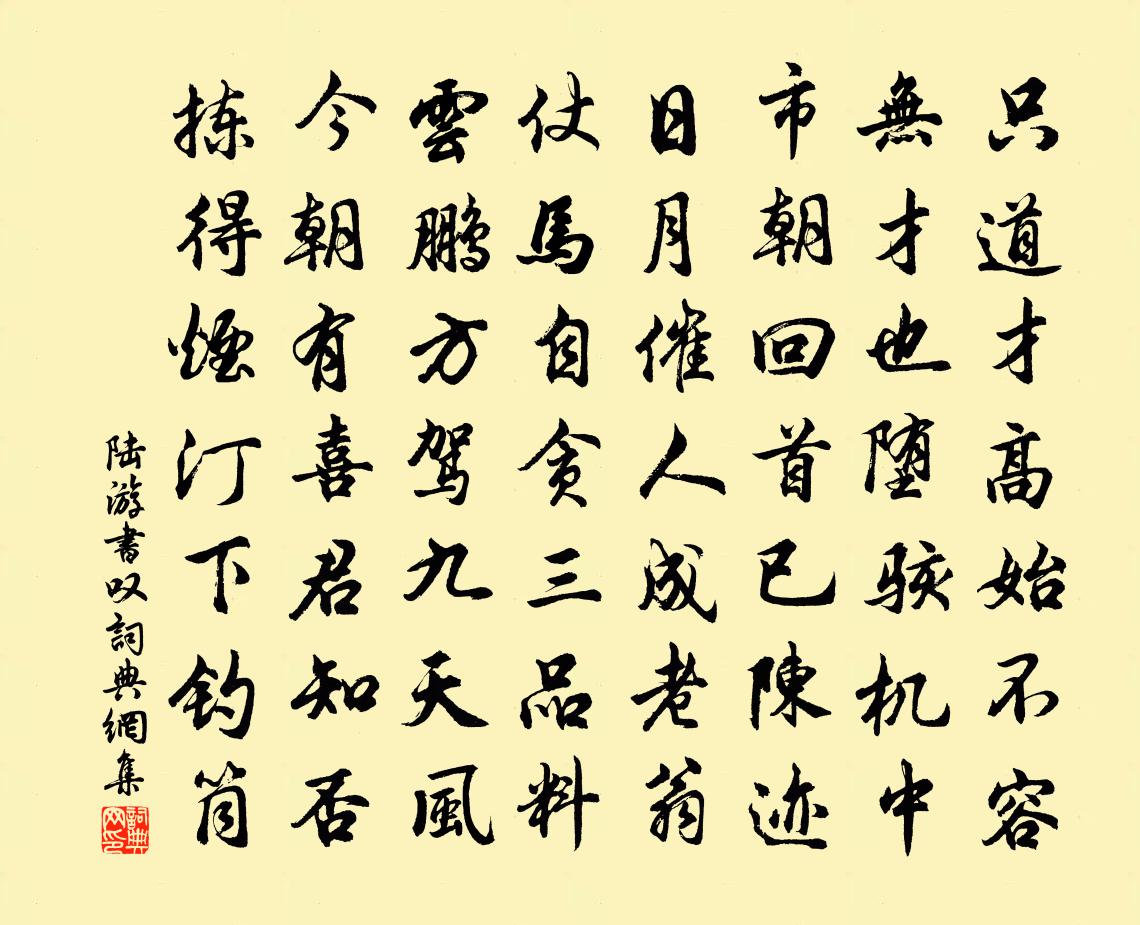 只道才高始不容
無才也堕骇机中
市朝回首已陳迹
日月催人成老翁
仗馬自贪三品料
雲鹏方驾九天風
今朝有喜君知否
拣得煙汀下钓筒
陆游書叹詞典網集
詞典网印